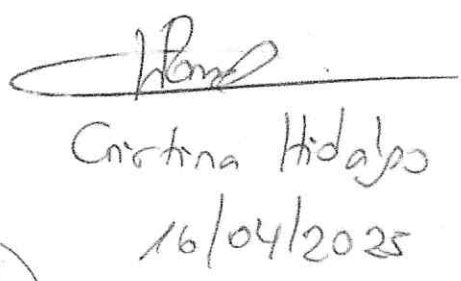 Cristina Hidalgo
16/04/2025